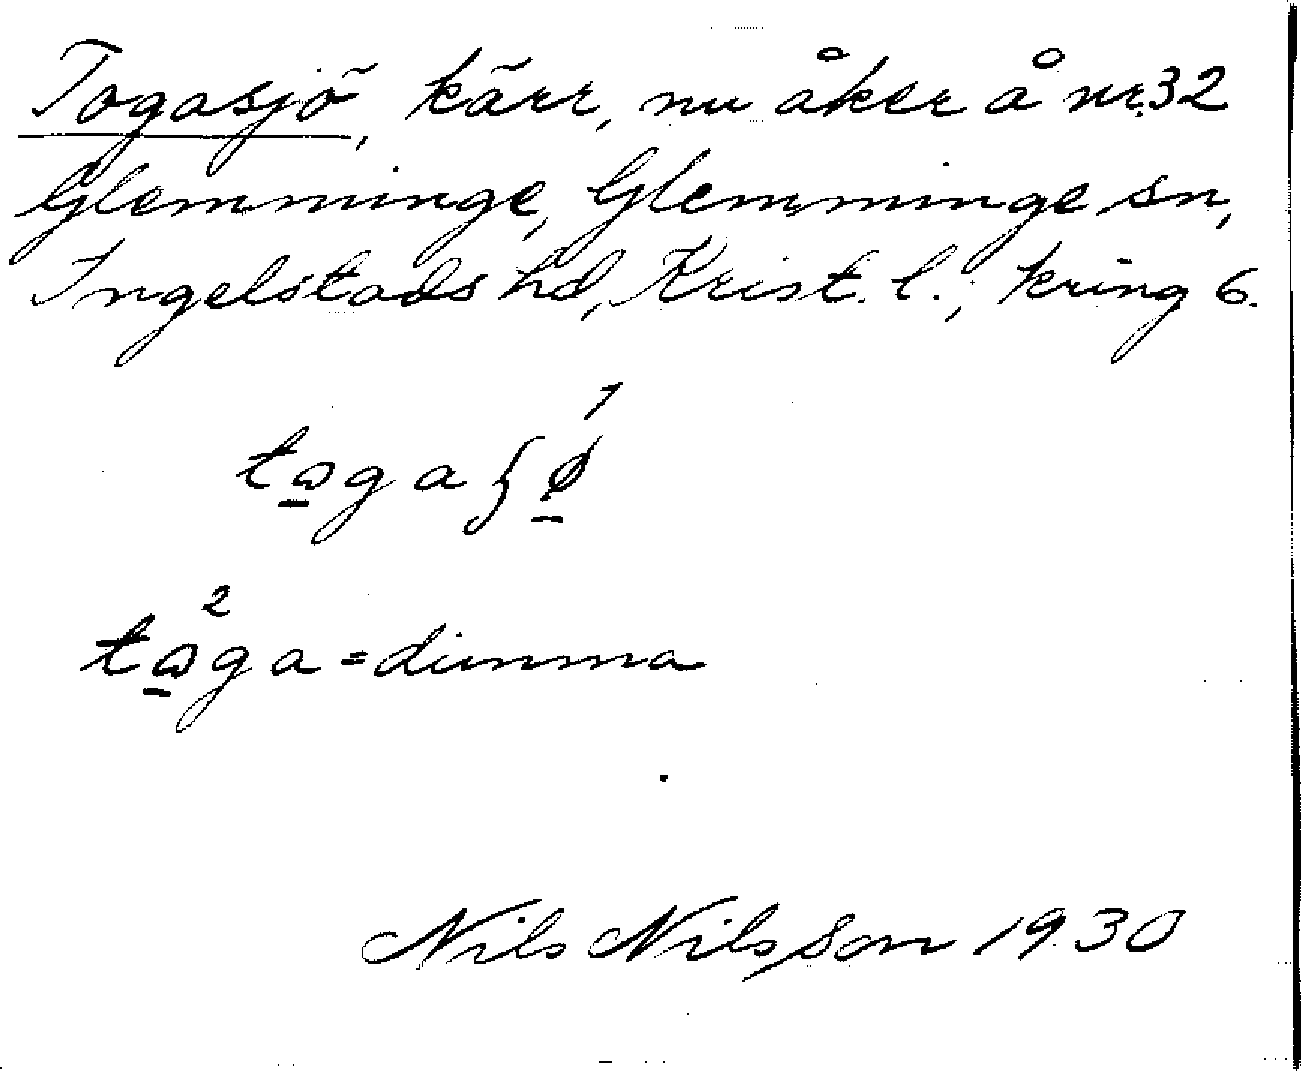 Togasjö, kärr, nu åker å nr.32
Glemminge, Glemminge sn,
Ingelstads hd, Krist. l., kring 6.
tωga ʃǿ
tω²ga = dimma
Nils Nilsson 1930